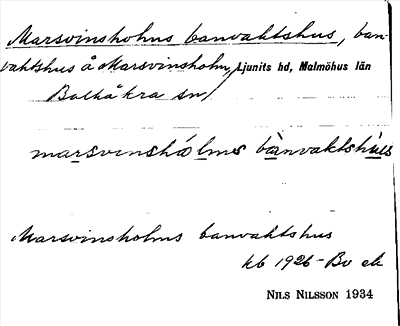 Marsvinsholms banvaktshus, ban-
vaktshus å Marsvinsholm, Ljunits hd, Malmöhus län
Balkåkra sn,
marsvinshólms bànvaktshùs
Marsvinsholms banvaktshus
kb 1926- Bv ek
NILS NILSSON 1934